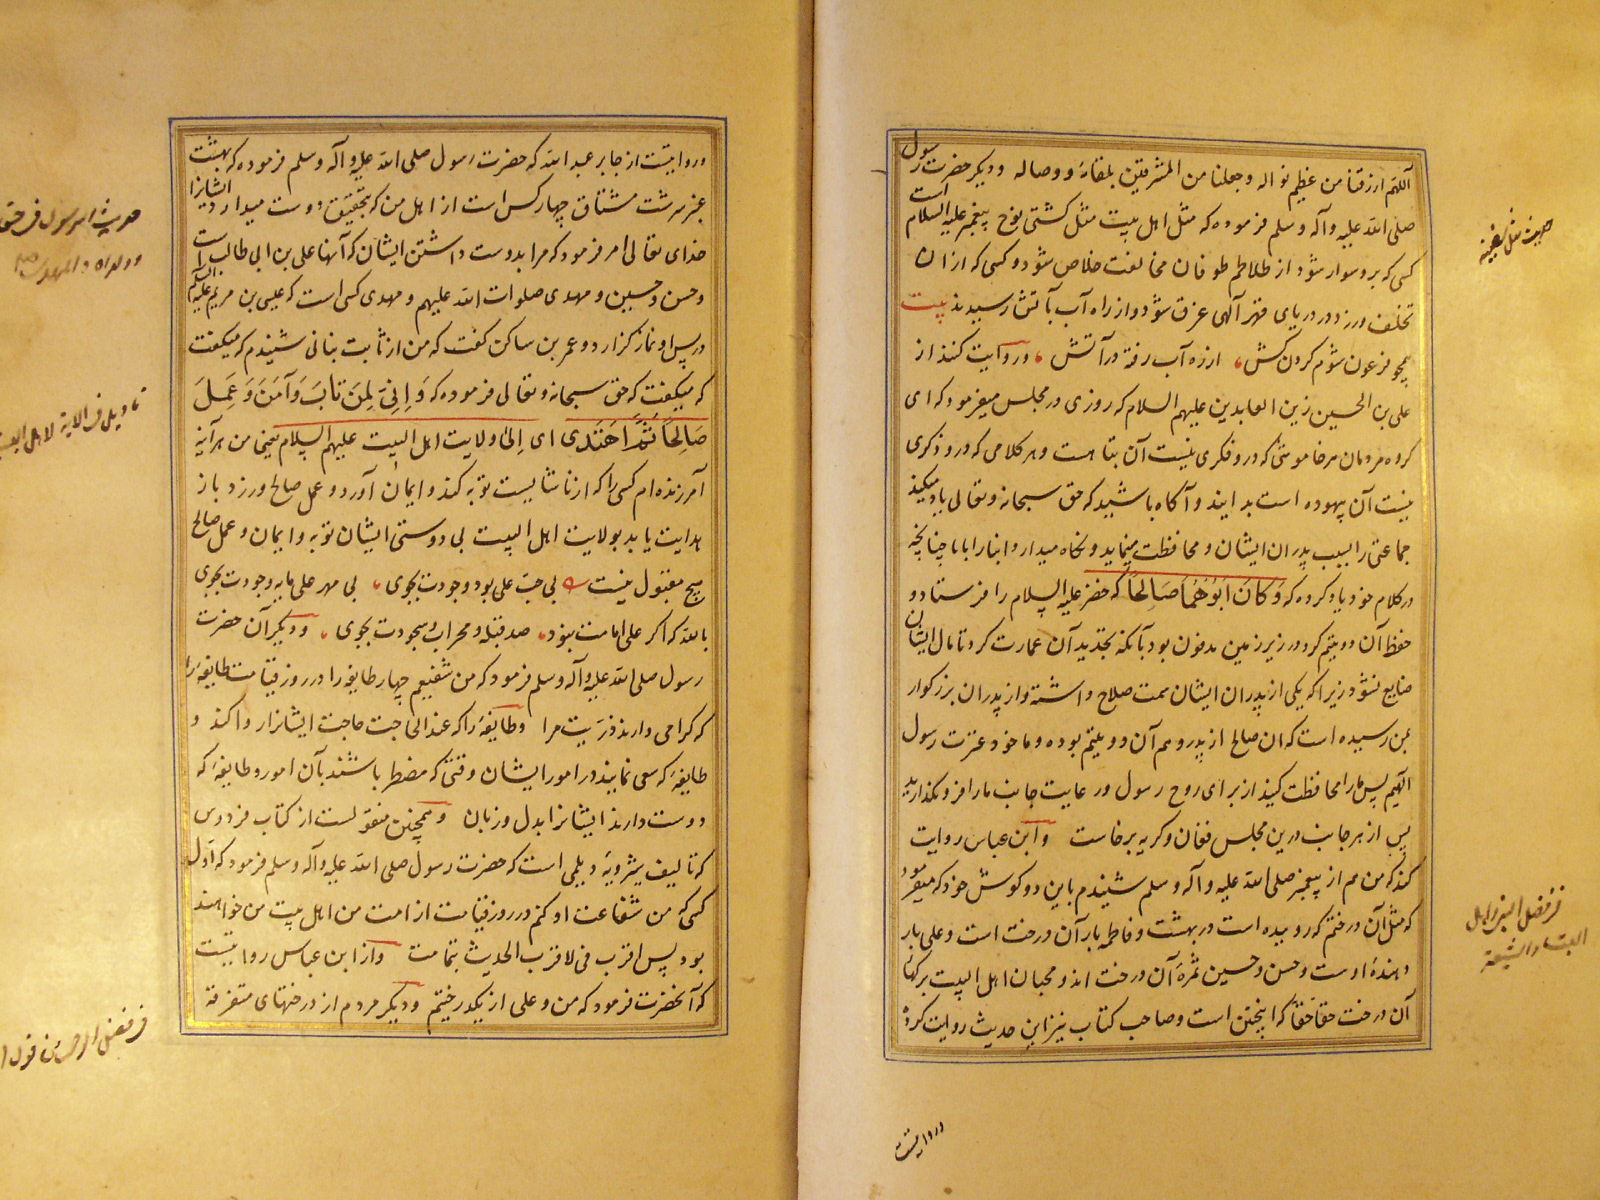 اللهم ارزقنا من عظیم نواله وجعلنا من المشرفین بلقائه ووصاله ودیگر حضرت رسول
صلی الله علیه وآله وسلم فرموده که مثل اهل بیت مثل کشتی نوح پیغمبر علیه السلام است
کسی که برو سوار شود از طلاطم طوفان مخالفت خلاص شود و کسی که از ان
تخلف ورزد در دریای قهر آلهی غرق شود واز راه آب بآتش رسیدند بیت
همچو فرعون شوم کردن کش ، از ره آب رفته در آتش ، وروایت کنند از
علی بن الحسین زین العابدین علیهم السلام که روزی در مجلس میفرمود که ای
کروه مردمان هر خاموشی که درو فکری نیست آن بتا هست وهر کلامی که درو ذکری
نیست آن بیهوده است بدانید وآکاه باشید که حق سبحانه وتعالی یاد میکند
جماعتی را بسبب پدران ایشان ومحافظت مینماید ونکاه میدارد ابنا را بابا چنانچه
در کلام خود یاد کرده که وَكَانَ اَبُوهُمَا صَالِحًا که خضر علیه السلام را فرستاد و
حفظ آن دو یتیم کرد در زیر زمین مدفون بود بآنکه بتجدید آن عمارت کرد تا مال ایشان
ضایع نشود زیرا که یکی از پدران ایشان سمت صلاح داشته واز پدران بزرکوار
بمن رسیده است که ان صالح از پدر و عم آن دو یتیم بوده وما خود عترت رسول
الهیم پس ما را محافظت کنید از برای روح رسول ورعایت جانب ما را فرو مکذارید
پس از هر جانب درین مجلس فغان وکریه برخاست وابن عباس روایت
کند که من هم از پیغمبر صلی الله علیه وآله وسلم شنیدم باین دو کوش خود که میفرمود
که مثل آن درختم که روییده است در بهشت وفاطمه بار آن درخت است وعلی بار
دهندهٔ اوست وحسن وحسین ثمرهٔ آن درخت اند ومحبان اهل البیت برکهای
آن درخت حقا حقا که اینچنین است وصاحب کتاب نیز این حدیث روایت کرده
وروایتست
حدیث مثل سفینة
فی فضل اهل
البیت والشیعة
وروایتست از جابر عبد الله که حضرت رسول صلی الله علیه وآله وسلم فرموده که بهشت
عنبر سرشت مشتاق چهار کس است از اهل من که بتحقیق دوست میدارد ایشانرا
خدای تعالی امر فرمود که مرا بدوست داشتن ایشان که آنها علی بن ابی طالب است
وحسن وحسین ومهدی صلوات الله علیهم ومهدی کسی است که عیسی بن مریم علیه السلام
در پس او نماز کزارد وعمر بن ساکن کفت که من از ثابت بنانی شنیدم که میکفت
که میکفت که حق سبحانه وتعالی فرموده که وَاِنِّی لِمَن تَابَ وَآمَنَ وَعَمِلَ
صَالِحًا ثُمَّ اهْتَدَی ای اِلیٰ ولایت اهل البیت علیهم السلام یعنی من هر آینه
آمرزنده ام کسی را که از ناشایست توبه کند وایمان آورد وعمل صالح ورزد باز
هدایت یابد بولایت اهل البیت بی دوستی ایشان توبه وایمان وعمل صالح
هیچ مقبول نیست بی حب علی بود وجودت بجوی ، بی مهر علی مایه وجودت بجوی
بالله که اکر علی امامت نبود، صد قبله ومحراب وسجودت بجوی ، ودیکر آن حضرت
رسول صلی الله علیه وآله وسلم فرمود که من شفیعم چهار طایفه را در روز قیامت طایفهٔ را
که کرامی دارند ذریت مرا وطایفهٔ را که عند الحاجت حاجت ایشانرا روا کند و
طایفهٔ که سعی نمایند در امور ایشان وقتی که مضطر باشند بآن امور وطایفهٔ که
دوست دارند ایشانرا بدل وزبان وهمچنین منقولست از کتاب فردوس
که تالیف شیرویه دیلمی است که حضرت رسول صلی الله علیه وآله وسلم فرمود که اول
کسی که من شفاعت او کنم در روز قیامت از امت من اهل بیت من خواهند
بود پس اقرب فی لاقرب الحدیث بتمامت واز ابن عباس روایتست
که آنحضرت فرمود که من وعلی از یکدرختیم ودیکر مردم از درختهای متفرقه
تاویل الایة لاهل البیت